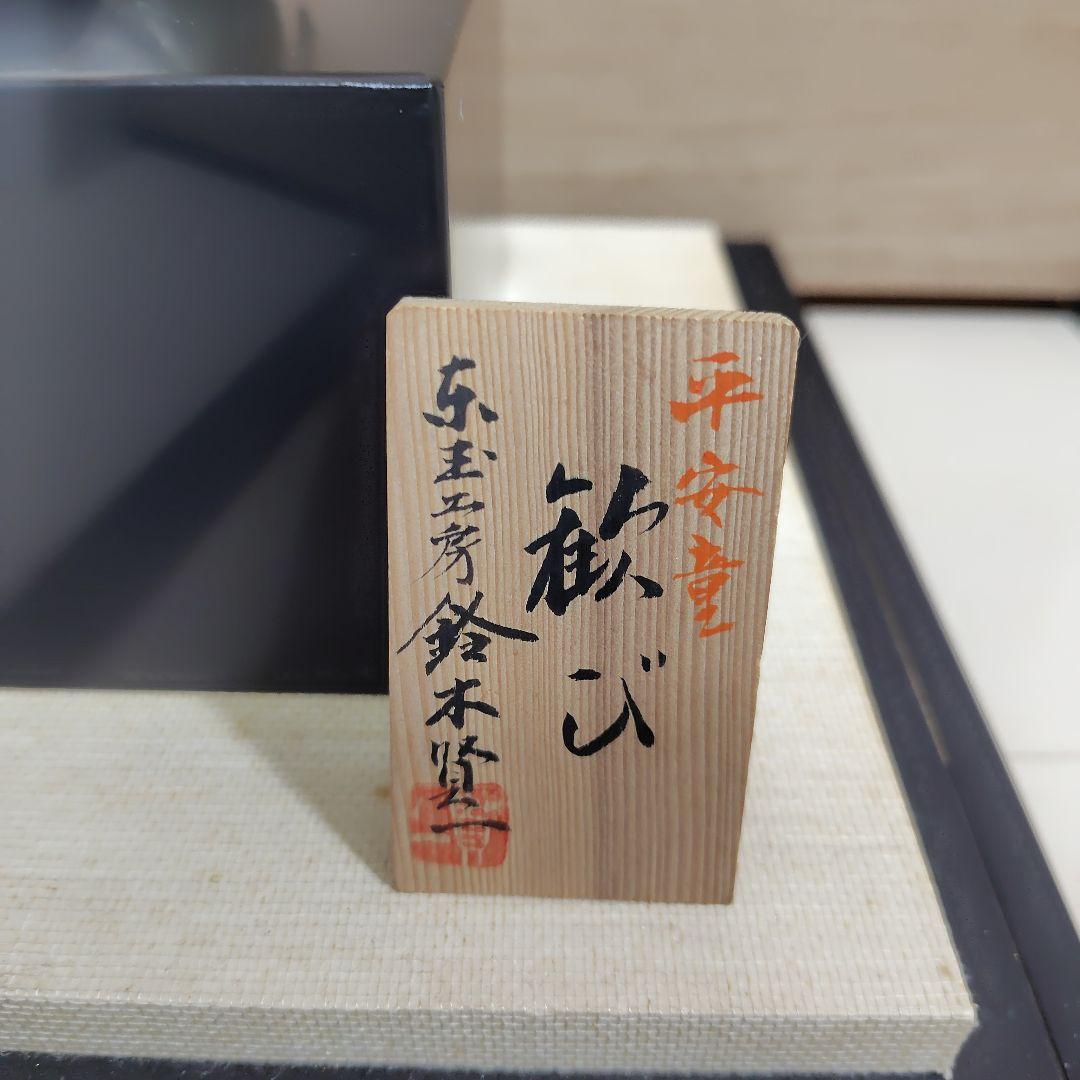 平安童
歓び
东玉工房鈴木賢一